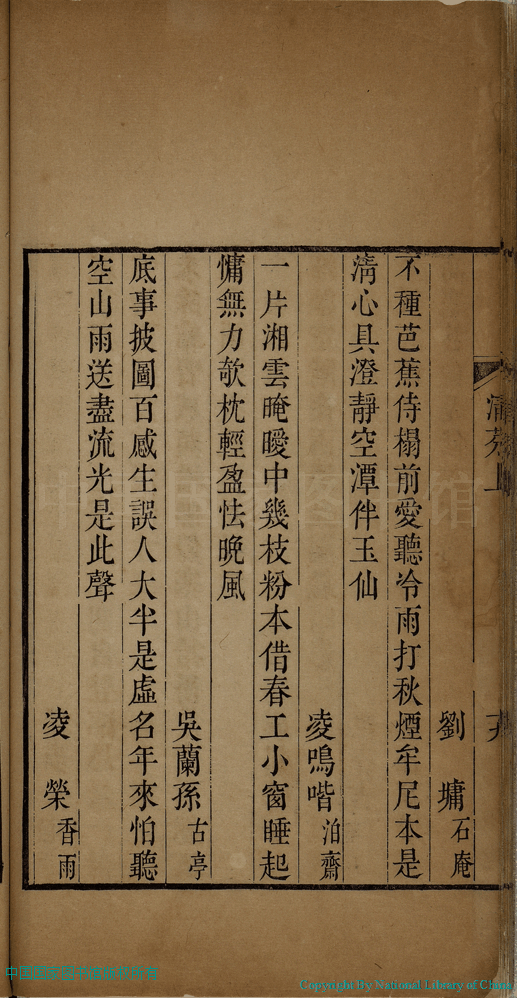 劉墉 石庵
不種芭蕉侍榻前愛聽冷雨打秋煙牟尼本是
淸心具澄靜空潭伴玉仙
凌鳴喈 泊齋
一片湘雲晻曖中幾枝粉本借春工小窗睡起
慵無力欹枕輕盈怯晩風
吳蘭孫 古亭
底事披圖百感生誤人大半是虛名年來怕聽
空山雨送盡流光是此聲
凌榮 香雨
Copyright By National Library of China